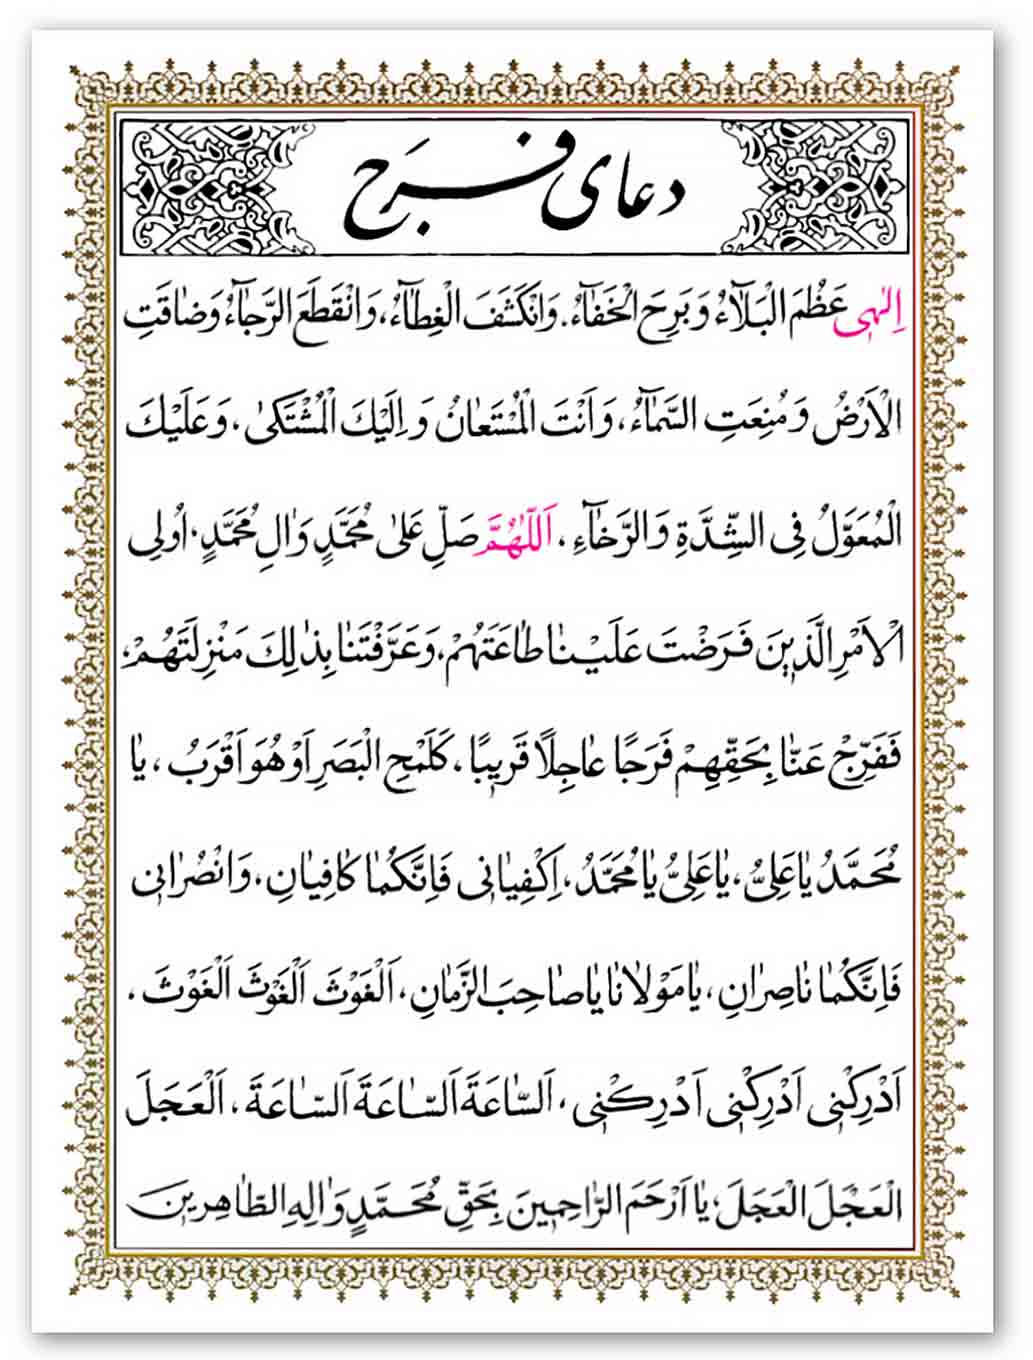 دعای فَرَج
اِلٰهی عَظُمَ الْبَلَآءُ وَ بَرِحَ الْخَفآءُ. وَانْكَشَفَ الْغِطآءُ، وَانْقَطَعَ الرَّجآءُ وَضاقَتِ
الْاَرْضُ وَ مُنِعَتِ السَّمآءُ، وَ اَنْتَ الْمُسْتَعانُ وَ اِلَيْكَ الْمُشْتَكىٰ، وَ عَلَيْكَ
الْمُعَوَّلُ فِى الشِّدَّةِ وَ الرَّخآءِ، اَللّٰهُمَّ صَلِّ عَلىٰ مُحَمَّدٍ وَ الِ مُحَمَّدٍ، اُولِى
الْاَمْرِ الَّذينَ فَرَضْتَ عَلَيْنا طاعَتَهُمْ، وَ عَرَّفْتَنا بِذٰلِكَ مَنْزِلَتَهُمْ،
فَفَرِّجْ عَنّا بِحَقِّهِمْ فَرَجًا عاجِلًا قَريبًا، كَلَمْحِ الْبَصَرِ اَوْ هُوَ اَقْرَبُ، يا
مُحَمَّدُ يا عَلِىُّ، يا عَلِىُّ يا مُحَمَّدُ، اِكْفِيانى فَاِنَّكُما كافِيانِ، وَ انْصُرانى
فَاِنَّكُما ناصِرانِ، يا مَوْلانا يا صاحِبَ الزَّمانِ، اَلْغَوْثَ اَلْغَوْثَ اَلْغَوْثَ،
اَدْرِكْنى اَدْرِكْنى اَدْرِكْنى، اَلسّاعَةَ اَلسّاعَةَ اَلسّاعَةَ، اَلْعَجَلَ
الْعَجَلَ الْعَجَلَ، يا اَرْحَمَ الرّاحِمينَ بِحَقِّ مُحَمَّدٍ وَ الِهِ الطّاهِرينَ